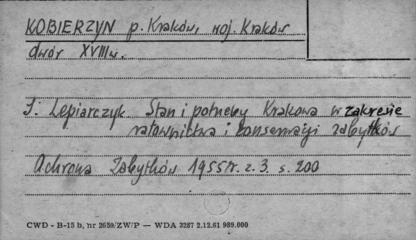 KOBIERZYN p. Kraków, woj. Kraków
dwór XVIII w.
J. Lepiarczyk Stan i potrzeby Krakowa w zakresie
ratownictwa i konserwacji zabytków
Ochrona Zabytków 1955 r. z. 3. s. 200
CWD - B-15 b, nr 2659/ZW/P — WDA 3287 2.12.61 989.000